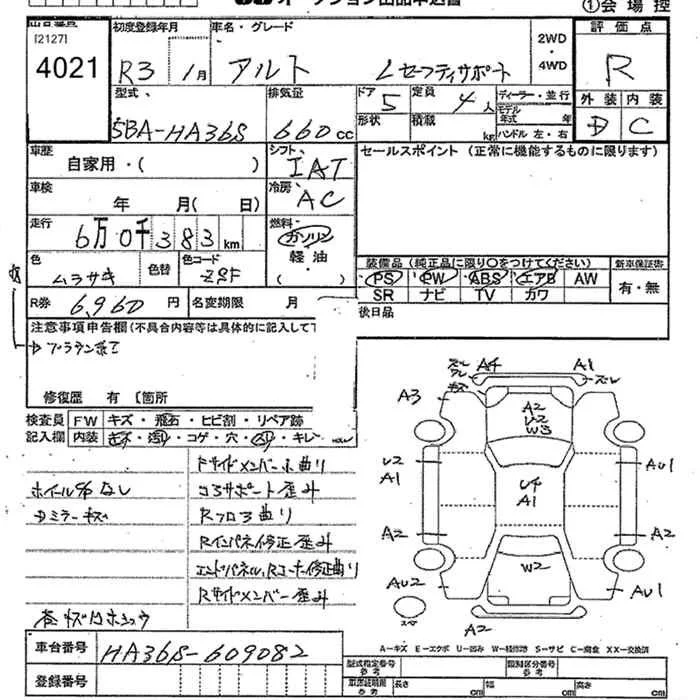 オークション出品申込書
①会場控
[2127]
4021
初度登録年月
R3 1月
車名・グレード
アルト Lセーフティサポート
2WD
・
4WD
評価点
R
型式
5BA-HA36S
排気量
660cc
ドア 5
定員 4人
形状
積載 kg
ディーラー・並行
モデル年式 年
ハンドル 左・右
外装 内装
D C
車歴
自家用・( )
シフト
IAT
セールスポイント (正常に機能するものに限ります)
車検
年 月( 日)
冷房
AC
走行
6万0千383km
燃料
ガソリン
軽油
( )
色
ムラサキ
色替
色コード
装備品 (純正品に限り○をつけてください)
新車保証書
PS PW ABS エアB AW
SR ナビ TV カワ
有・無
R券 6,960円
名変期限 月
後日品
注意事項申告欄(不具合内容等は具体的に記入して下
修復歴 有 [箇所
検査員
記入欄
FW キズ・飛石・ヒビ割・リペア跡
内装 キズ・汚れ・コゲ・穴・スリ・キレ
Fサイドメンバー小曲り
コアサポート歪み
Rフロア曲り
Rインパネ修正歪み
エンドパネル、Rコーナー修正曲り
Rサイドメンバー歪み
ホイールCapなし
ミラーキズ
A4
A1
ズレ
キズ
A3
A2
U2
W3
U2
A1
U4
A1
AU1
A2
A2
W2
AU2
AU1
A2
A-キズ E-エクボ U-凹み W-補修跡 S-サビ C-腐食 XX-交換済
車台番号
HA36S-609082
登録番号
型式指定番号
参考
類別区分番号
参考
車庫証明用
参考
長さ cm 幅 cm 高さ cm